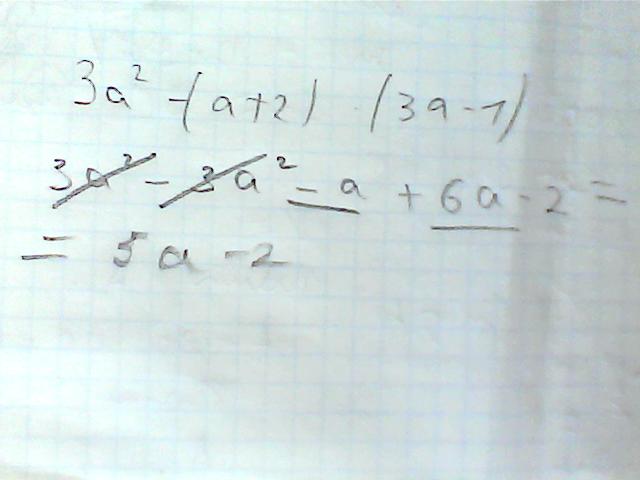 3a² -(a+2) · (3a-1)
3a² - 3a² - a + 6a - 2 =
= 5a - 2